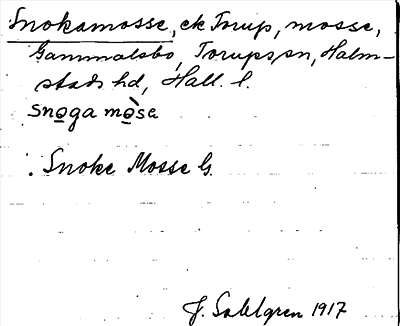 Snokamosse, ek Torup, mosse,
Gammalsbo, Torups sn, Halm-
stads hd, Hall. l.
snoga mòse
Snoke Mosse G.
J. Sahlgren 1917